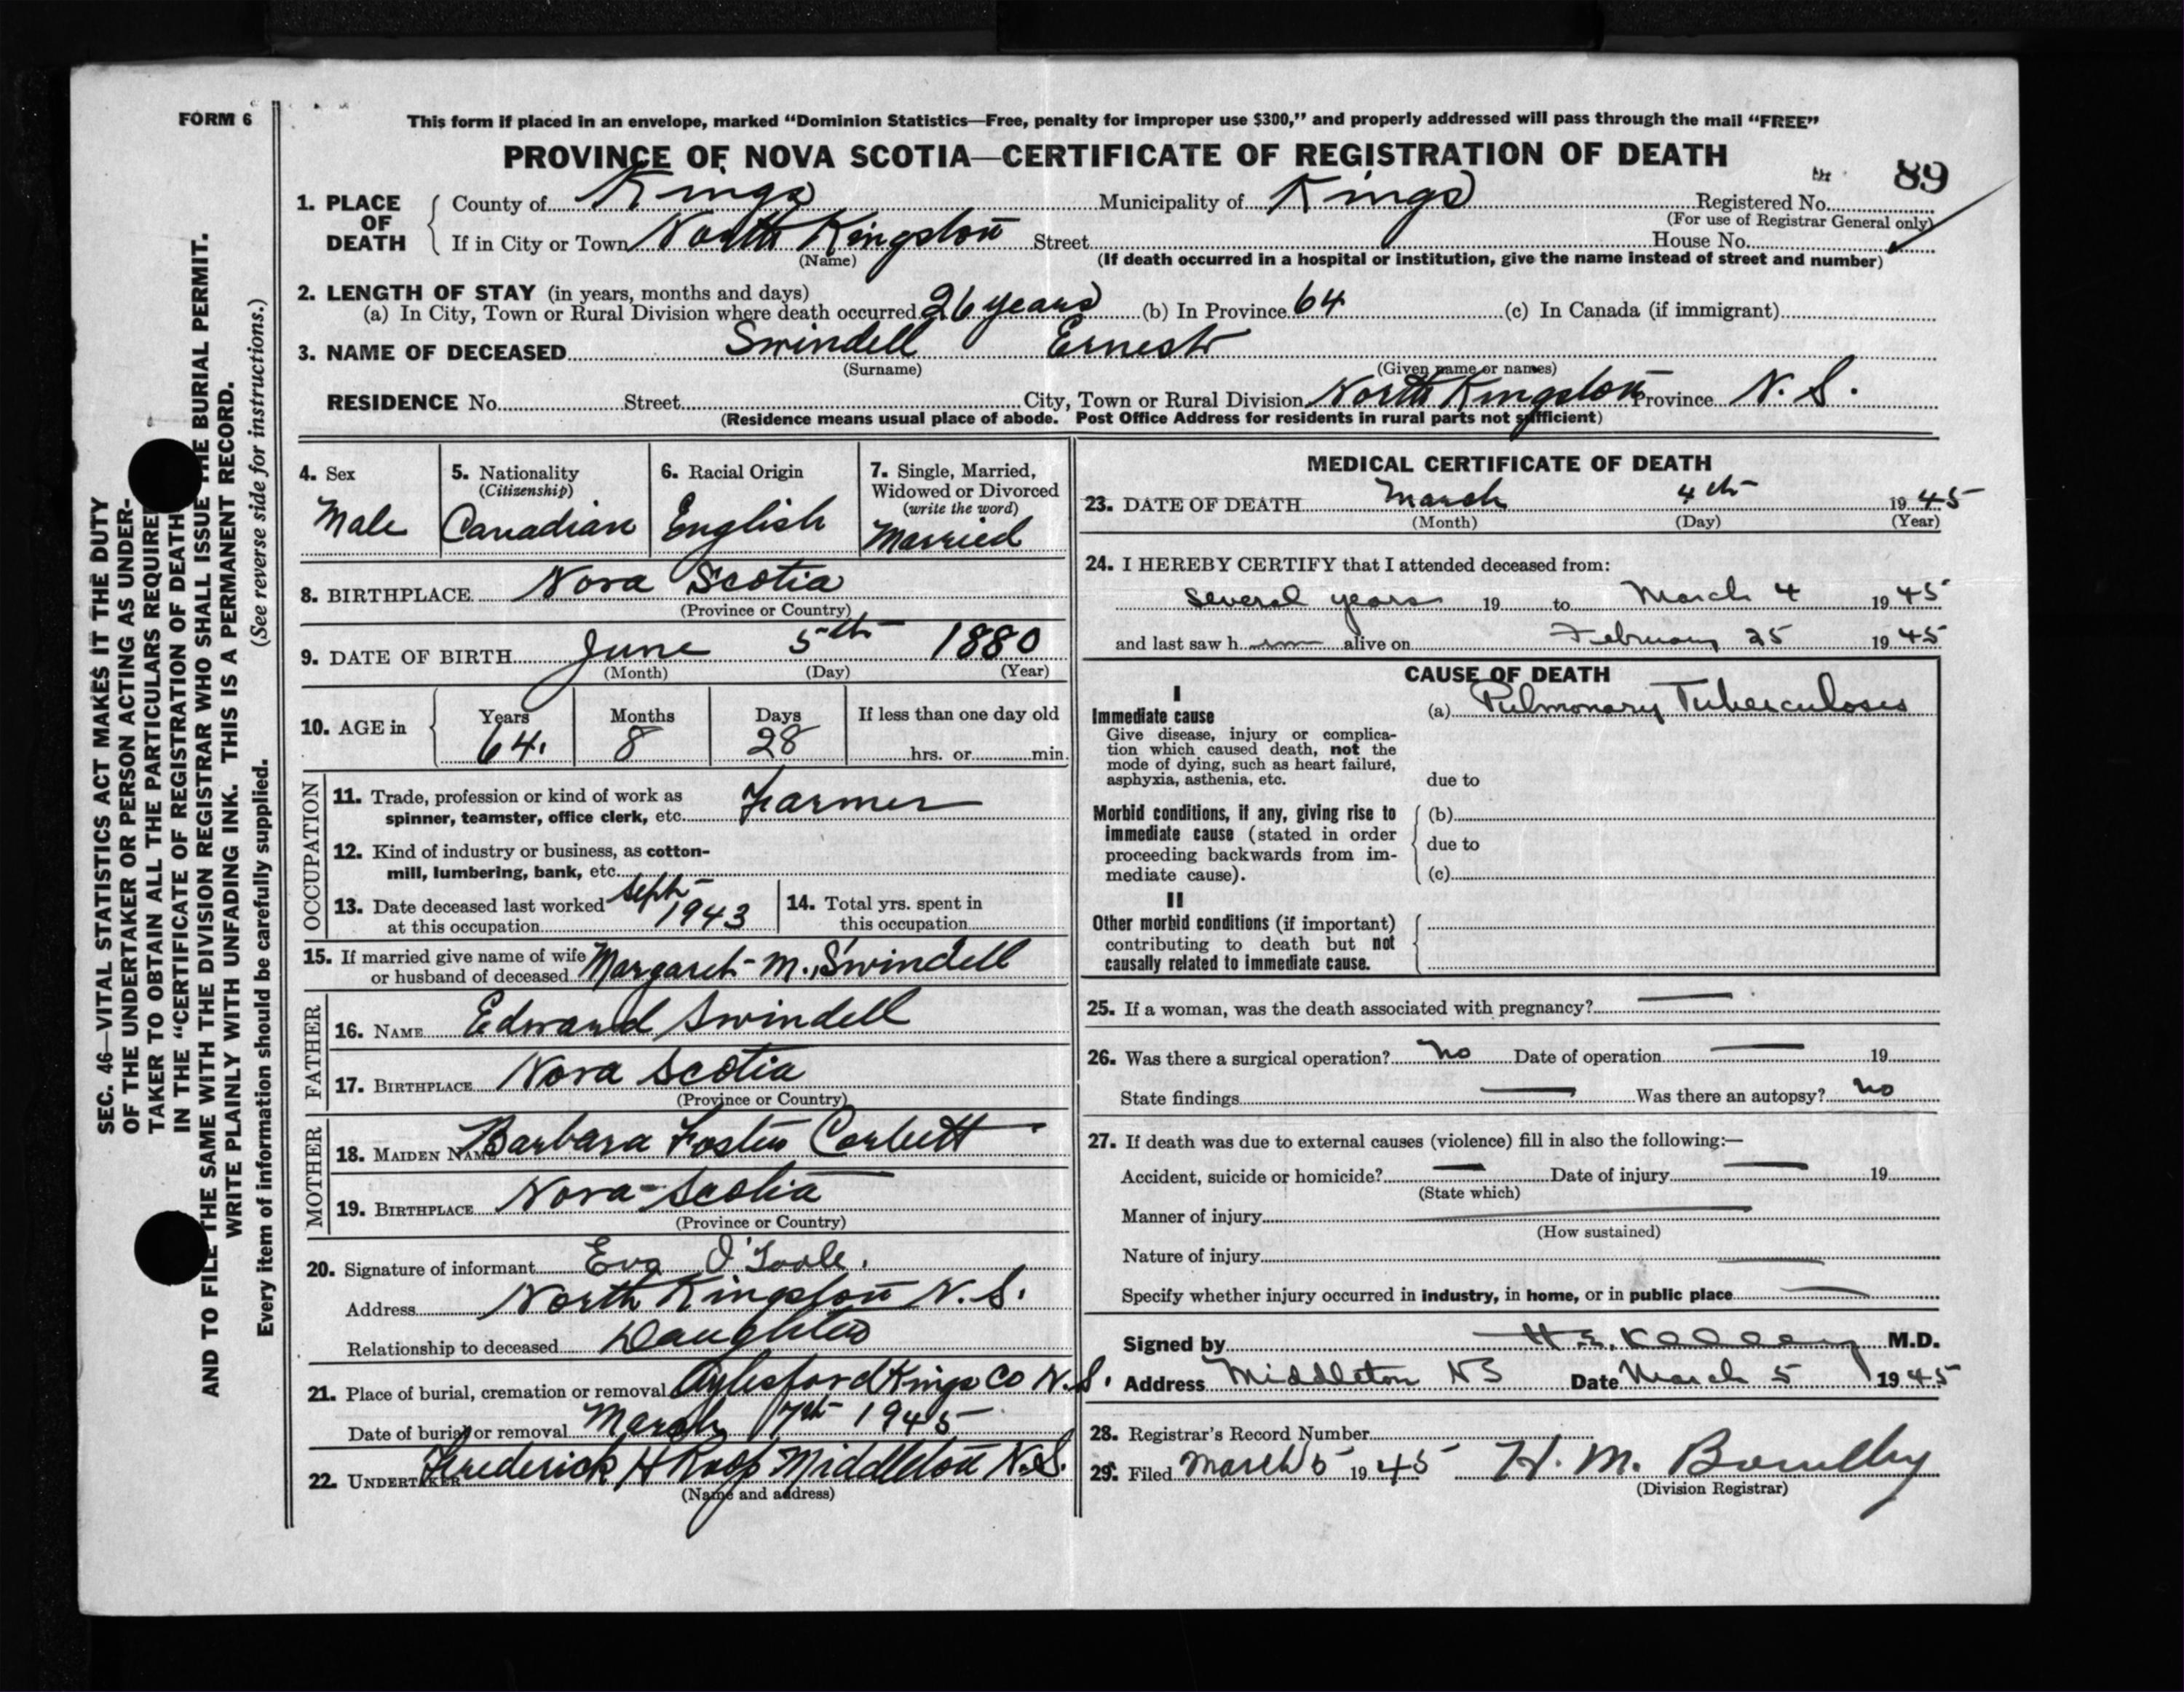 FORM 6
This form if placed in an envelope, marked “Dominion Statistics—Free, penalty for improper use $300,” and properly addressed will pass through the mail “FREE”
PROVINCE OF NOVA SCOTIA—CERTIFICATE OF REGISTRATION OF DEATH
89
1. PLACE OF DEATH
County of Kings Municipality of Kings Registered No.
(For use of Registrar General only)
If in City or Town North Kingston Street House No.
(Name) (If death occurred in a hospital or institution, give the name instead of street and number)
2. LENGTH OF STAY (in years, months and days)
(a) In City, Town or Rural Division where death occurred 26 years (b) In Province 64 (c) In Canada (if immigrant)
3. NAME OF DECEASED Swindell Ernest
(Surname) (Given name or names)
RESIDENCE No. Street City, Town or Rural Division North Kingston Province N. S.
(Residence means usual place of abode. Post Office Address for residents in rural parts not sufficient)
4. Sex
Male
5. Nationality
(Citizenship)
Canadian
6. Racial Origin
English
7. Single, Married,
Widowed or Divorced
(write the word)
Married
8. BIRTHPLACE Nova Scotia
(Province or Country)
9. DATE OF BIRTH June 5th 1880
(Month) (Day) (Year)
10. AGE in
Years Months Days If less than one day old
64. 8 28 hrs. or min.
OCCUPATION
11. Trade, profession or kind of work as
spinner, teamster, office clerk, etc. Farmer
12. Kind of industry or business, as cotton-
mill, lumbering, bank, etc.
13. Date deceased last worked
at this occupation Sept 1943
14. Total yrs. spent in
this occupation
15. If married give name of wife
or husband of deceased Margaret M. Swindell
FATHER
16. NAME Edward Swindell
17. BIRTHPLACE Nova Scotia
(Province or Country)
MOTHER
18. MAIDEN NAME Barbara Foster Corbett
19. BIRTHPLACE Nova-Scotia
(Province or Country)
20. Signature of informant Eva O'Toole.
Address North Kingston N. S.
Relationship to deceased Daughter
21. Place of burial, cremation or removal Aylesford Kings Co N. S.
Date of burial or removal March 7th 1945
22. UNDERTAKER Frederick H Roop Middleton N.S.
(Name and address)
MEDICAL CERTIFICATE OF DEATH
23. DATE OF DEATH March 4th 1945
(Month) (Day) (Year)
24. I HEREBY CERTIFY that I attended deceased from:
Several years 19 to March 4 1945
and last saw h im alive on February 25 1945
CAUSE OF DEATH
I
Immediate cause
Give disease, injury or complica-
tion which caused death, not the
mode of dying, such as heart failure,
asphyxia, asthenia, etc.
(a) Pulmonary Tuberculosis
due to
Morbid conditions, if any, giving rise to
immediate cause (stated in order
proceeding backwards from im-
mediate cause).
(b)
due to
(c)
II
Other morbid conditions (if important)
contributing to death but not
causally related to immediate cause.
25. If a woman, was the death associated with pregnancy? —
26. Was there a surgical operation? No Date of operation — 19
State findings — Was there an autopsy? No
27. If death was due to external causes (violence) fill in also the following:—
Accident, suicide or homicide? — Date of injury — 19
(State which)
Manner of injury —
(How sustained)
Nature of injury —
Specify whether injury occurred in industry, in home, or in public place —
Signed by H. E. Kelley M.D.
Address Middleton NS Date March 5 1945
28. Registrar's Record Number
29. Filed March 5 1945 H. M.
(Division Registrar)
SEC. 46—VITAL STATISTICS ACT MAKES IT THE DUTY
OF THE UNDERTAKER OR PERSON ACTING AS UNDER-
TAKER TO OBTAIN ALL THE PARTICULARS REQUIRE
IN THE “CERTIFICATE OF REGISTRATION OF DEATH
AND TO FILE THE SAME WITH THE DIVISION REGISTRAR WHO SHALL ISSUE THE BURIAL PERMIT.
WRITE PLAINLY WITH UNFADING INK. THIS IS A PERMANENT RECORD.
Every item of information should be carefully supplied. (See reverse side for instructions.)